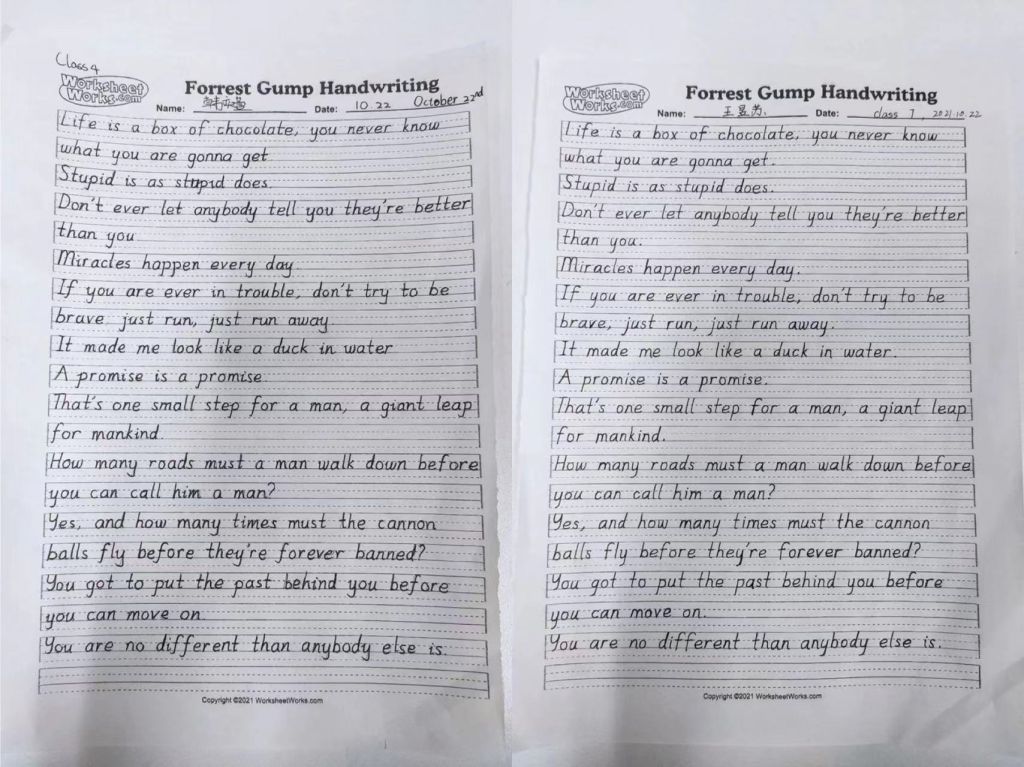 Class 4
Worksheet
Works.com
Forrest Gump Handwriting
Name: Date: 10.22 October 22nd
Life is a box of chocolate, you never know
what you are gonna get
Stupid is as stupid does.
Don't ever let anybody tell you they're better
than you
Miracles happen every day.
If you are ever in trouble, don't try to be
brave, just run, just run away
It made me look like a duck in water
A promise is a promise.
That's one small step for a man, a giant leap
for mankind.
How many roads must a man walk down before
you can call him a man?
Yes, and how many times must the cannon
balls fly before they're forever banned?
You got to put the past behind you before
you can move on.
You are no different than anybody else is.
Copyright ©2021 WorksheetWorks.com
Worksheet
Works.com
Forrest Gump Handwriting
Name: 王昱为 Date: class 1, 2021.10.22
Life is a box of chocolate, you never know
what you are gonna get.
Stupid is as stupid does.
Don't ever let anybody tell you they're better
than you.
Miracles happen every day.
If you are ever in trouble, don't try to be
brave, just run, just run away.
It made me look like a duck in water.
A promise is a promise.
That's one small step for a man, a giant leap
for mankind.
How many roads must a man walk down before
you can call him a man?
Yes, and how many times must the cannon
balls fly before they're forever banned?
You got to put the past behind you before
you can move on.
You are no different than anybody else is.
Copyright ©2021 WorksheetWorks.com